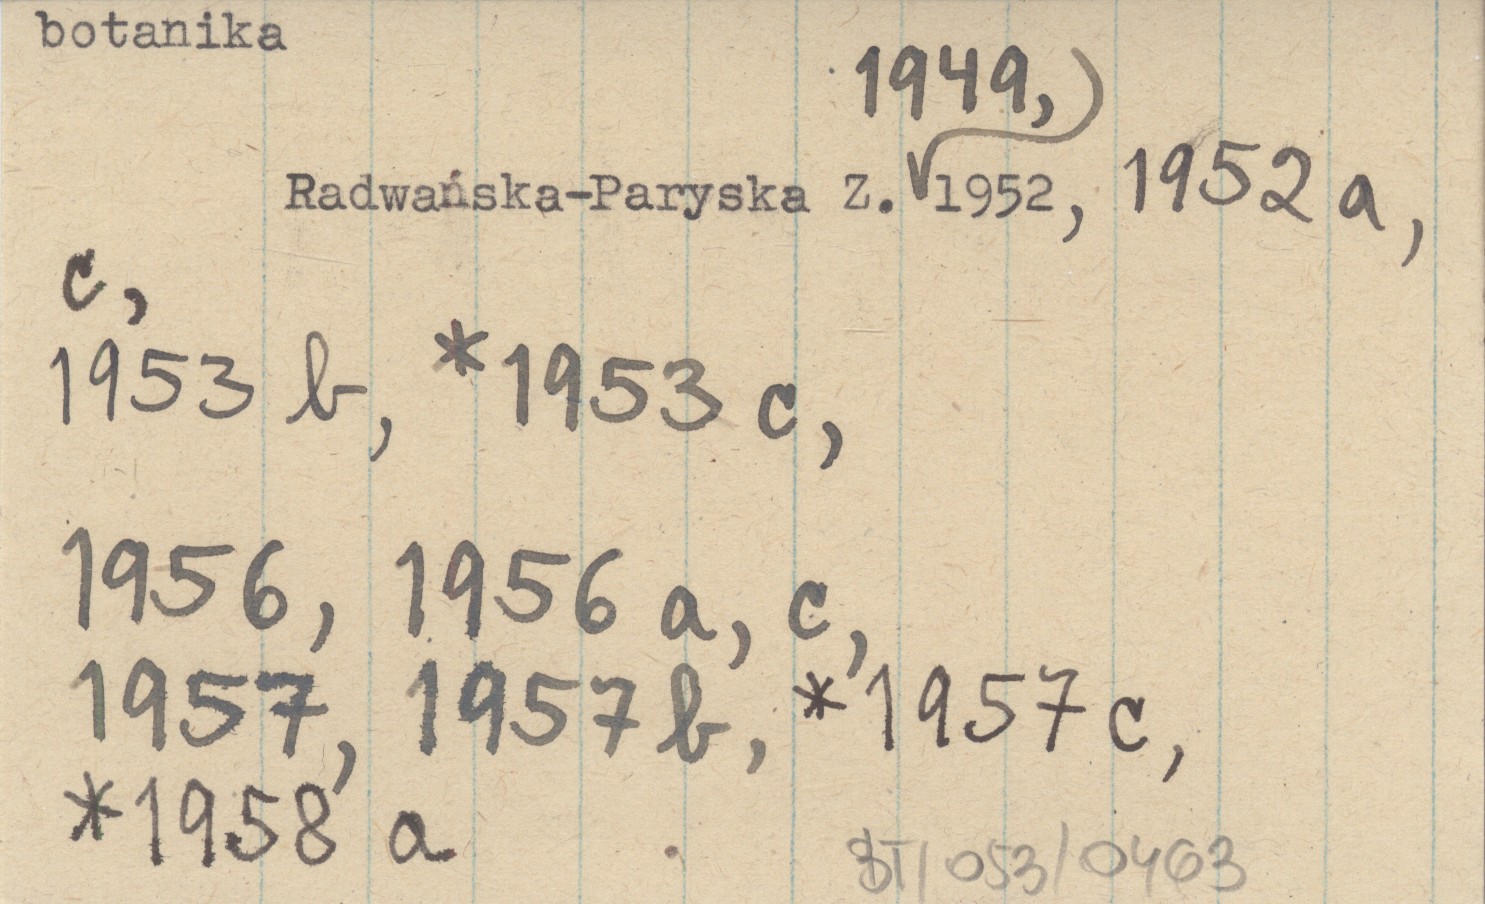 botanika
1949,
Radwańska-Paryska Z. 1952, 1952 a,
c,
1953 b, *1953 c,
1956, 1956 a, c,
1957, 1957 b, *1957 c,
*1958 a
BT/053/0463